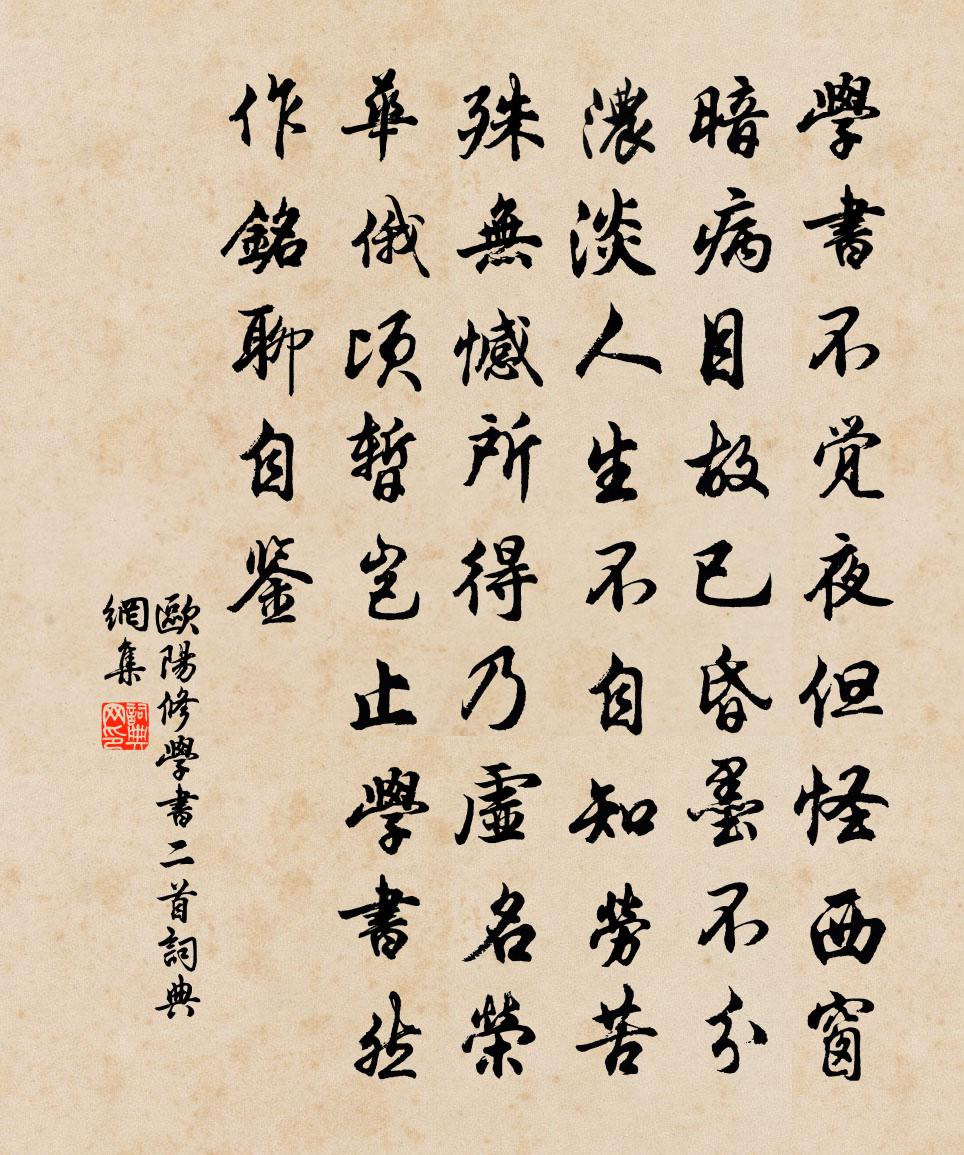 學書不覚夜但怪西窗
暗病目故已昏墨不分
濃淡人生不自知勞苦
殊無憾所得乃虛名榮
華俄頃暫岂止學書然
作銘聊自鉴
歐陽修學書二首詞典
網集
詞典
网印